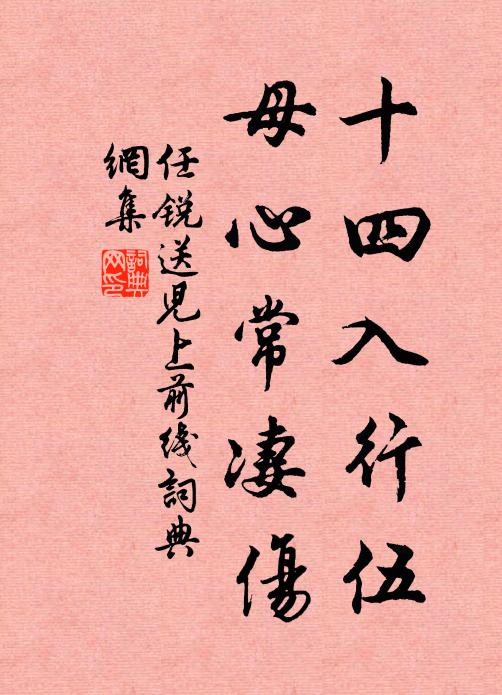 十四入行伍
母心常凄傷
任锐送児上前线詞典
網集
詞典网印